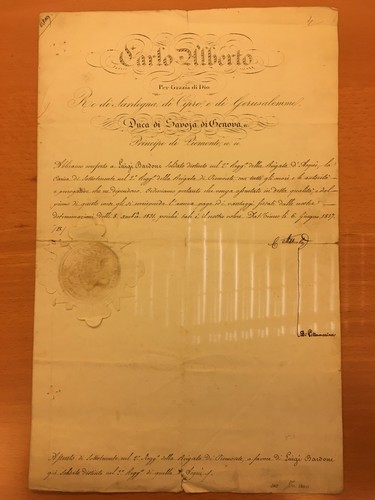 Carlo Alberto
Per Grazia di Dio
Re di Sardegna, di Cipro e di Gerusalemme,
Duca di Savoja, di Genova,
Principe di Piemonte, &c. &c.
Abbiamo conferto a Luigi Bardoni Soldato distinto nel 2º Regg.to della Brigata d'Acqui, la
Carica di Sottotenente nel 2º Regg.to della Brigata di Piemonte, con tutti gli onori e le autorità
e prerogative che ne dipendono. Ordiniamo pertanto che venga in detta qualità, e dal
di questo mese gli si l'annua paga ed i vantaggi fissati dalla nostra
Determinazione delli 1831, perchè tale è il nostro volere. Dat. li 6. Giugno 1837.
C. Alberto
di Sottotenente nel 2º Regg.to della Brigata di Piemonte, a favore di Luigi Bardoni
già Soldato distinto nel 2º Regg.to di quella d'Acqui